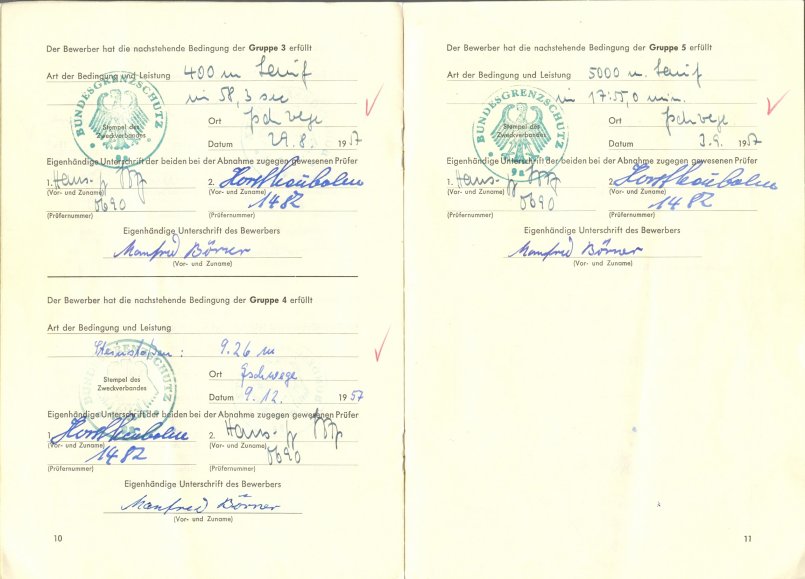 Der Bewerber hat die nachstehende Bedingung der Gruppe 3 erfüllt
Art der Bedingung und Leistung 400 m Lauf
in 58,3 sec
BUNDESGRENZSCHUTZ
Stempel des
Zweckverbandes
Ort Eschwege
Datum 29.8. 1957
Eigenhändige Unterschrift der beiden bei der Abnahme zugegen gewesenen Prüfer
1. Hans- 2. Horst
(Vor- und Zuname) (Vor- und Zuname)
0690 1482
(Prüfernummer) (Prüfernummer)
Eigenhändige Unterschrift des Bewerbers
Manfred Börner
(Vor- und Zuname)
Der Bewerber hat die nachstehende Bedingung der Gruppe 4 erfüllt
Art der Bedingung und Leistung
Steinstoßen: 9.26 m
BUNDESGRENZSCHUTZ
Stempel des
Zweckverbandes
Ort Eschwege
Datum 9.12. 1957
Eigenhändige Unterschrift der beiden bei der Abnahme zugegen gewesenen Prüfer
1. Horst 2. Hans-
(Vor- und Zuname) (Vor- und Zuname)
1482 0690
(Prüfernummer) (Prüfernummer)
Eigenhändige Unterschrift des Bewerbers
Manfred Börner
(Vor- und Zuname)
10
Der Bewerber hat die nachstehende Bedingung der Gruppe 5 erfüllt
Art der Bedingung und Leistung 5000 m Lauf
in 17:55,0 min.
BUNDESGRENZSCHUTZ
Stempel des
Zweckverbandes
Ort Eschwege
Datum 3.9. 1957
Eigenhändige Unterschrift der beiden bei der Abnahme zugegen gewesenen Prüfer
1. Hans- 2. Horst
(Vor- und Zuname) (Vor- und Zuname)
0690 1482
(Prüfernummer) (Prüfernummer)
Eigenhändige Unterschrift des Bewerbers
Manfred Börner
(Vor- und Zuname)
11